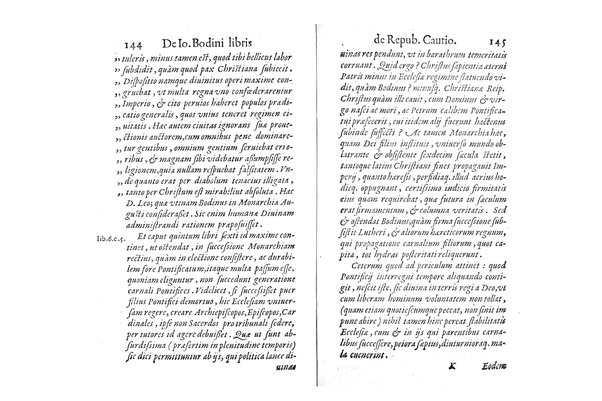 144 De Io. Bodini libris
„ tuleris, minus tamen est, quod tibi bellicus labor
„ subdidit, quàm quod pax Christiana subiecit.
„ Disposito namque diuinitus operi maxime con-
„ gruebat, vt multa regna vno confœderarentur
„ Imperio, & cito peruios haberet populos prædi-
„ catio generalis, quos vnius teneret regimen ci-
„ uitatis. Hæc autem ciuitas ignorans suæ proue-
„ ctionis auctorem, cum omnibus pene dominare-
„ tur gentibus, omnium gentium seruiebat erro-
„ ribus, & magnam sibi videbatur assumpsisse re-
„ ligionem, quia nullam respuebat falsitatem. Vn-
„ de quanto erat per diabolum tenacius illigata,
„ tanto per Christum est mirabilius absoluta. Hæc
D. Leo; qua vtinam Bodinus in Monarchia Au-
gusti considerasset. Sic enim humanæ Diuinam
administrandi rationem præposuisset.
lib.6.c.5. Et capus quintum libri sexti id maxime con-
tinet, vt ostendat, in successione Monarchiam
rectius, quàm in electione consistere, ac durabi-
lem fore Pontificatum, itaque multa passum esse,
quoniam eliguntur, non succedunt generatione
carnali Pontifices. Videlicet, si successisset puer
filius Pontifici demortuo, hic Ecclesiam vniuer-
sam regere, creare Archiepiscopos, Episcopos, Car
dinales, ipse non Sacerdos pro tribunali sedere,
per tutores id agere debuisset. Quæ ut sunt ab-
surdissima (præsertim in plenitudine temporis)
sic dici permittuntur ab ijs, qui politica lance di-
uinas
de Repub. Cautio. 145
uinas res pendunt, vt in barathrum temeritatis
corruant. Quid ergo? Christus sapientia æterni
Patris minus in Ecclesiæ regimine statuendo vi-
dit, quàm Bodinus? minusq. Christianæ Reip.
Christus quàm ille cauit, cum Dominus & vir-
go nasci ac mori, ac Petrum calibem Pontifica-
tui præfecerit, cui itidem alij fuerunt hactenus
subinde suffecti? Ac tamen Monarchia hæc,
quam Dei filius instituit, vniuerso mundo ob-
latrante & obsistente sexdecim sæcula stetit,
tantoque latius Christiani fines propagant Im-
perij, quanto hæresis, perfidiaq. illud acrius ho-
dieq. oppugnant, certissimo iudicio firmitatis
eius quam requirebat, quæ futura in sæculum
erat firmamentum, & columna veritatis. Sed
& ostendat Bodinus, quàm firma successione sub-
stiti Lutheri, & aliorum hæreticorum regnum,
qui propagatione carnalium filiorum, quot ca-
pita, tot hydras posteritati reliquerunt.
Ceterum quod ad periculum attinet: quod
Pontificij interregni tempore aliquando conti-
git, nescit iste, sic diuina in terris regi à Deo, vt
cum liberam hominum voluntatem non tollat,
(quam etiam quotiescumque peccat, non sinit im
pune abire) nihil tamen hîc pereat stabilitatis
Ecclesiæ, cum & in ijs qui parentibus carna-
libus successere, peiora sæpius, diuturnioraq. ma-
la euenerint.
K Eodem